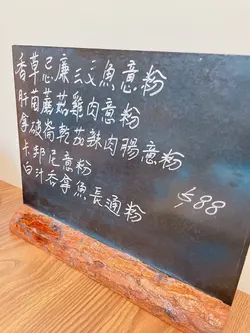 香草忌廉三文魚意粉
肝菌蘑菇雞肉意粉
拿破崙乾茄辣肉腸意粉
卡邦尼意粉
白汁吞拿魚長通粉
$88